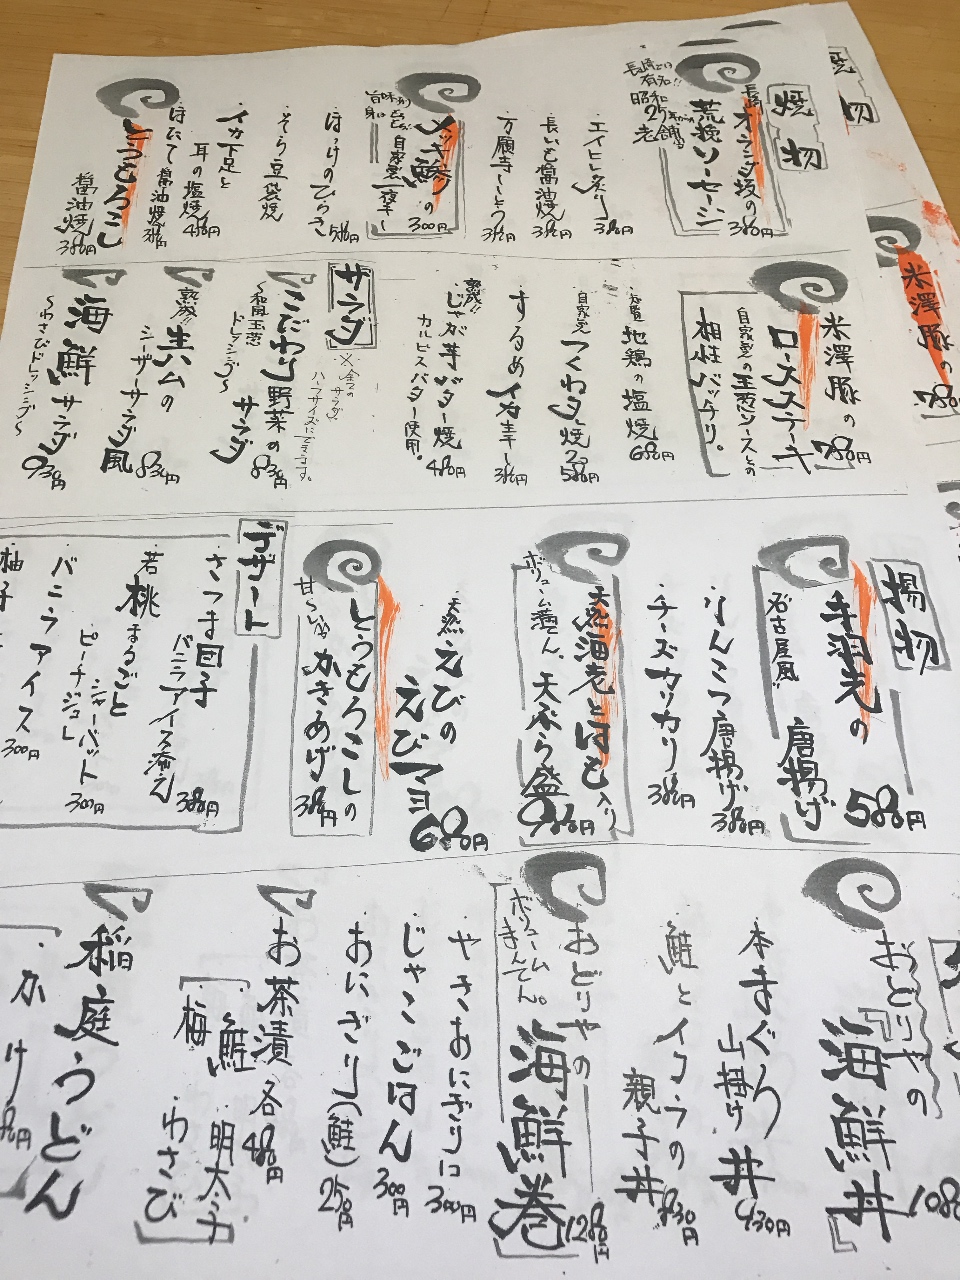 焼物
長崎オランダ坂の
荒挽ソーセージ
380円
長崎では
有名!!
昭和
老舗
エイヒレ炙り
380円
長いも醤油焼
380円
万願寺ししとう
380円
メッキ鯵の
自家製一夜干し
300円
ほっけのひらき
そら豆袋焼
イカ下足と
耳の塩焼
480円
ほたて醤油焼
とうもろこし
醤油焼
380円
米澤豚の
ロースステーキ
780円
自家製の玉葱ソースとの
相性バッチリ。
地鶏の塩焼
680円
自家製
つくね夕焼
2コ
580円
するめイカ一夜干し
380円
熟成!!
じゃが芋バター焼
カルピスバター使用。
480円
サラダ
※全ての
サラダ
ハーフサイズにできます。
こだわり野菜の
サラダ
830円
〜和風玉葱
ドレッシング〜
熟成!!
生ハムの
シーザーサラダ風
830円
海鮮サラダ
〜わさびドレッシング〜
930円
揚物
手羽先の
唐揚げ
580円
名古屋風!!
りんこつ唐揚げ
380円
チーズカリカリ
380円
天然海老とはも入り
天ぷら盛
980円
ボリューム満てん。
天然えびの
えびマヨ
680円
とうもろこしの
かきあげ
380円
甘〜い
デザート
さつま団子
バニラアイス添え
380円
若桃まるごと
シャーベット
ピーチジュレ
300円
バニラアイス
300円
柚子
おどりやの
海鮮丼
1080
本まぐろ
山掛け丼
930円
鮭とイクラの
親子丼
830円
おどりやの
海鮮巻
1280円
ボリューム
まんてん。
やきおにぎり
300円
じゃこごはん
300円
おにぎり(鮭)
250円
お茶漬
各480円
鮭
梅
明太子
わさび
稲庭うどん
かけ
米澤豚の
780